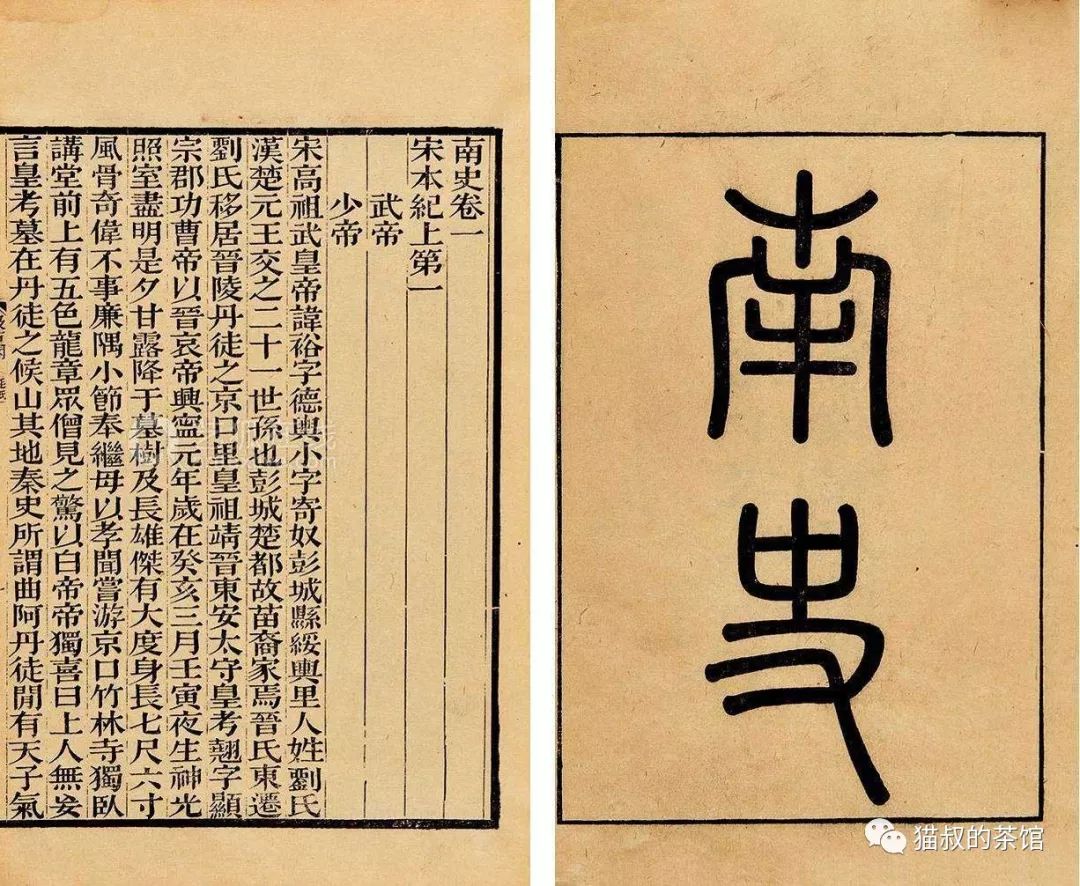 南史
南史卷一
宋本紀上第一
武帝
少帝
宋高祖武皇帝諱裕字德輿小字寄奴彭城縣綏輿里人姓劉氏
漢楚元王交之二十一世孫也彭城楚都故苗裔家焉晉氏東遷
劉氏移居晉陵丹徒之京口里皇祖靖晉東安太守皇考翹字顯
宗郡功曹帝以晉哀帝興寧元年歲在癸亥三月壬寅夜生神光
照室盡明是夕甘露降于墓樹及長雄傑有大度身長七尺六寸
風骨奇偉不事廉隅小節奉繼母以孝聞嘗游京口竹林寺獨臥
講堂前上有五色龍章眾僧見之驚以白帝帝獨喜曰上人無妄
言皇考墓在丹徒之候山其地秦史所謂曲阿丹徒閒有天子氣
猫叔的茶馆